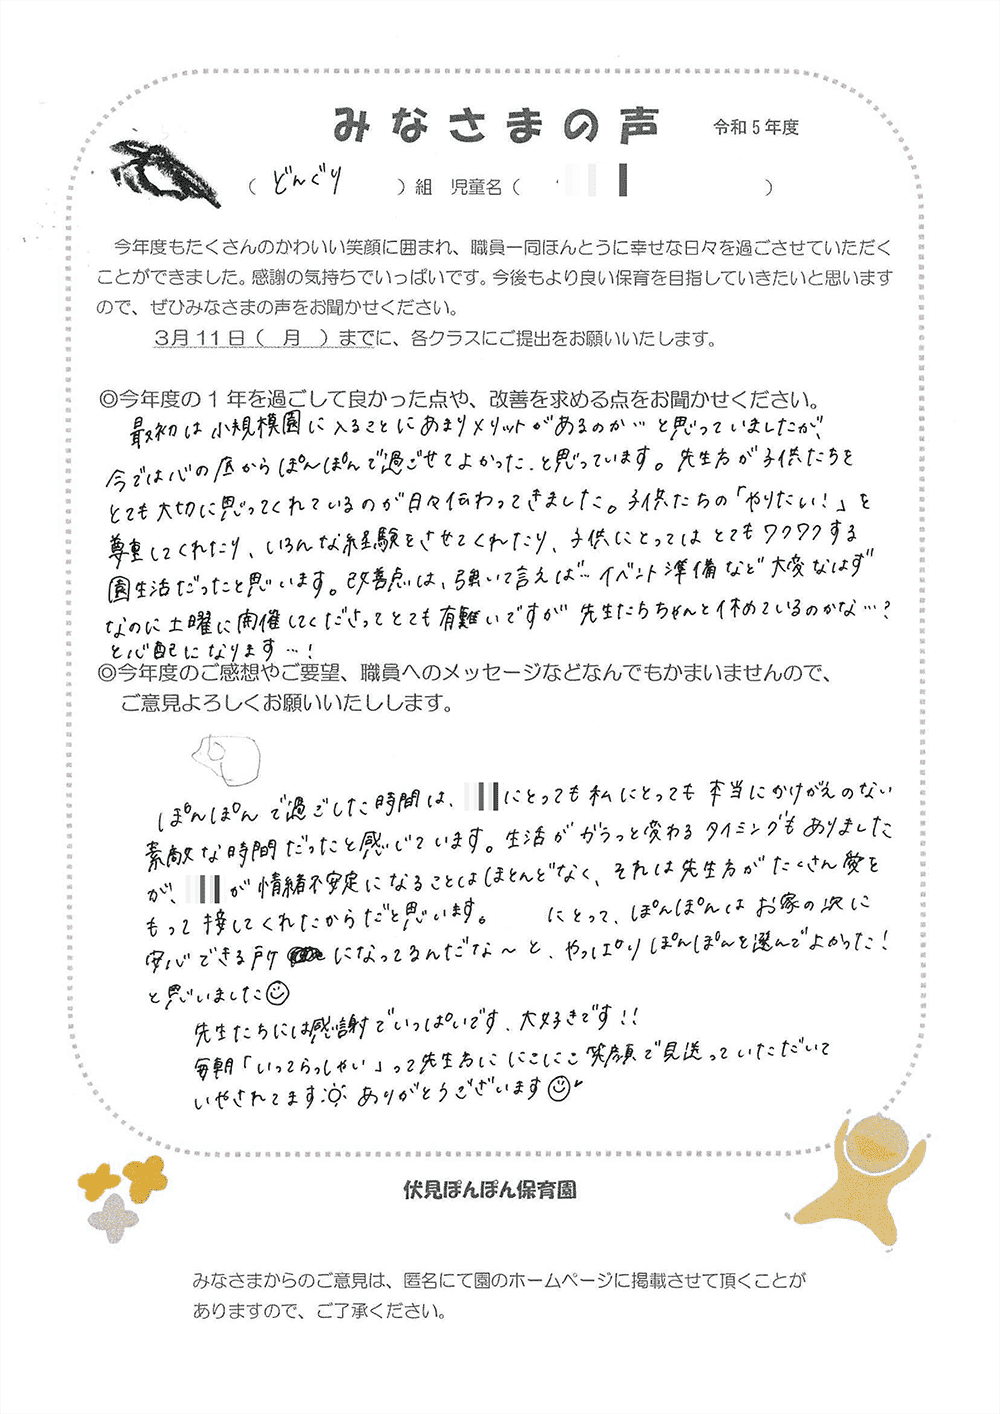 みなさまの声 令和5年度
（どんぐり ）組 児童名（ ）
今年度もたくさんのかわいい笑顔に囲まれ、職員一同ほんとうに幸せな日々を過ごさせていただく
ことができました。感謝の気持ちでいっぱいです。今後もより良い保育を目指していきたいと思います
ので、ぜひみなさまの声をお聞かせください。
3月11日（ 月 ）までに、各クラスにご提出をお願いいたします。
◎今年度の1年を過ごして良かった点や、改善を求める点をお聞かせください。
最初は小規模園に入ることにあまりメリットがあるのか…と思っていましたが、
今では心の底からぽんぽんで過ごせてよかった、と思っています。先生方が子供たちを
とても大切に思ってくれているのが日々伝わってきました。子供たちの「やりたい！」を
尊重してくれたり、いろんな経験をさせてくれたり、子供にとってはとてもワクワクする
園生活だったと思います。改善点は、強いて言えば…イベント準備など大変なはず
なのに土曜に開催してくださってとても有難いですが先生たちちゃんと休めているのかな…？
と心配になります…！
◎今年度のご感想やご要望、職員へのメッセージなどなんでもかまいませんので、
ご意見よろしくお願いいたしします。
ぽんぽんで過ごした時間は、 にとっても私にとっても本当にかけがえのない
素敵な時間だったと感じています。生活ががらっと変わるタイミングもありました
が、 が情緒不安定になることはほとんどなく、それは先生方がたくさん愛を
もって接してくれたからだと思います。 にとって、ぽんぽんはお家の次に
安心できる所になってるんだな〜と、やっぱりぽんぽんを選んでよかった！
と思いました☺
先生たちには感謝でいっぱいです、大好きです！！
毎朝「いってらっしゃい」って先生方ににこにこ笑顔で見送っていただいて
いやされてます☼ありがとうございます☺
伏見ぽんぽん保育園
みなさまからのご意見は、匿名にて園のホームページに掲載させて頂くことが
ありますので、ご了承ください。